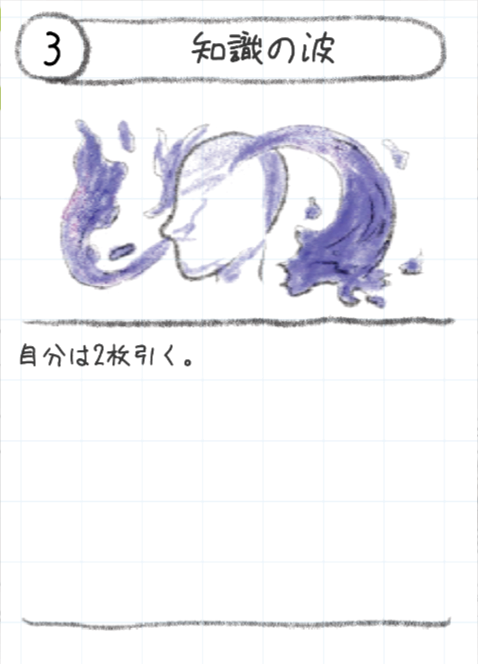 3
知識の波
自分は2枚引く。